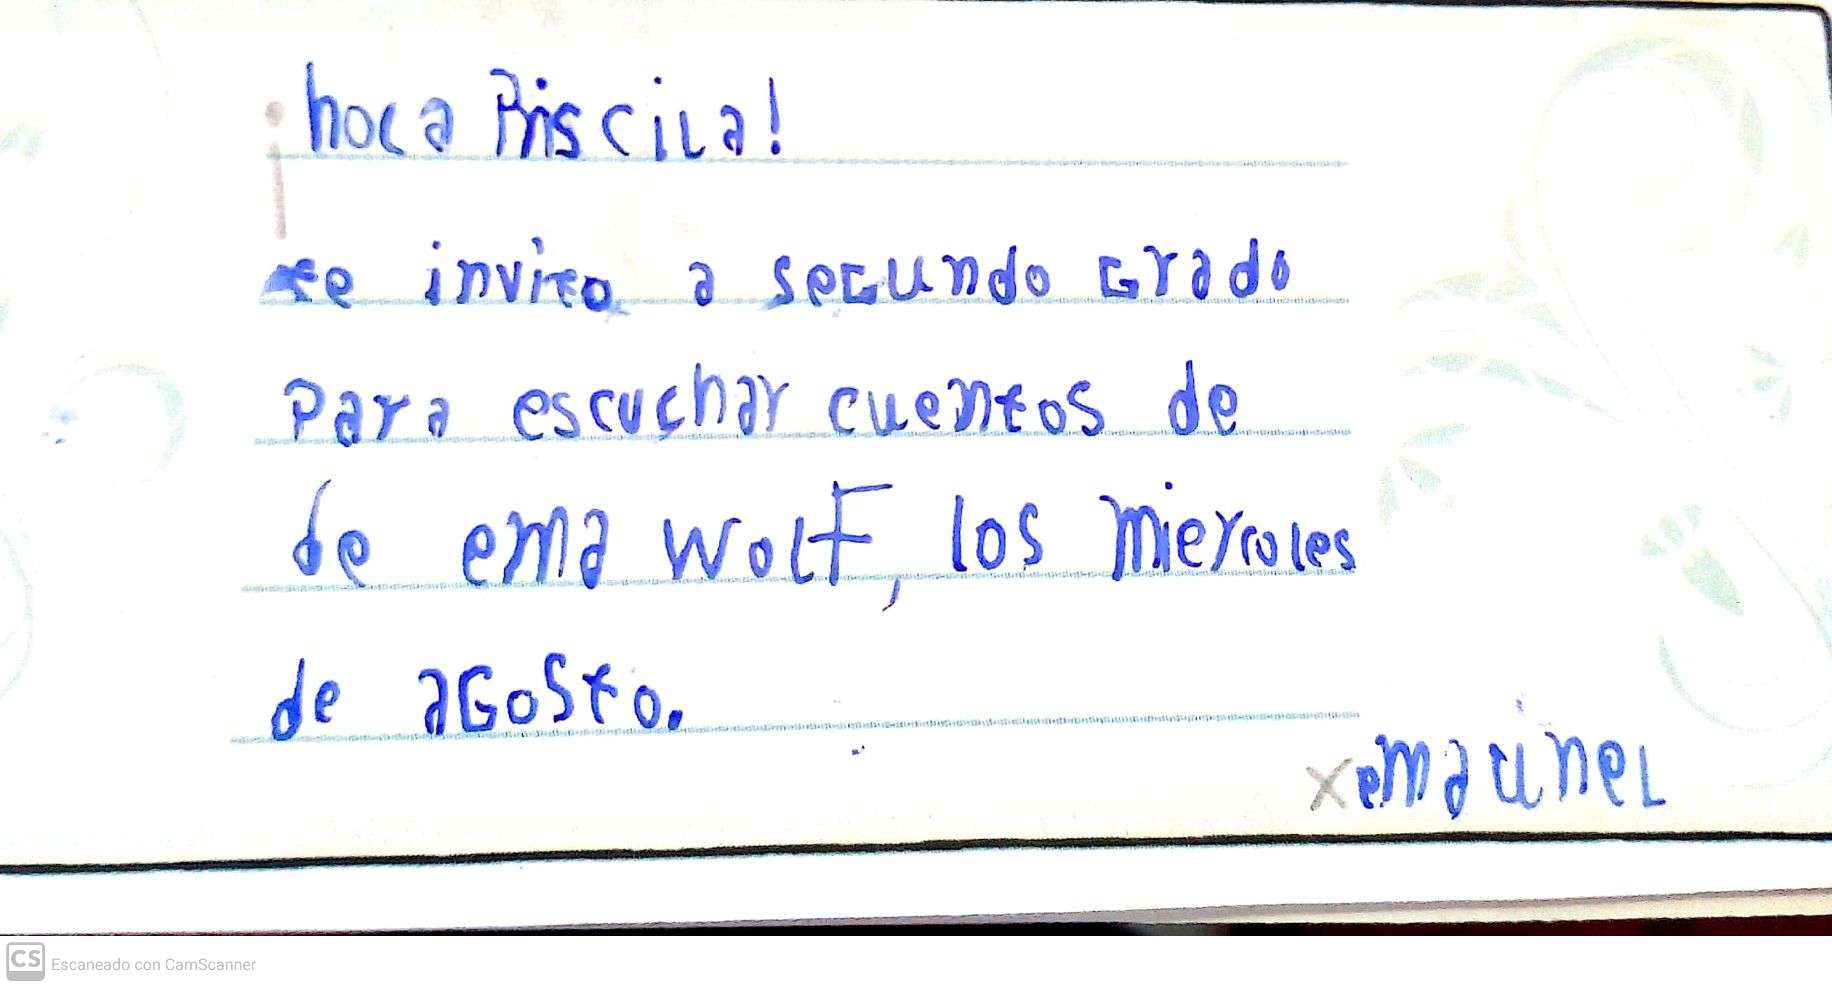 ¡hola Priscila!
te invito a segundo Grado
Para escuchar cuentos de
de ema Wolf, los miercoles
de aGosto.
CS Escaneado con CamScanner